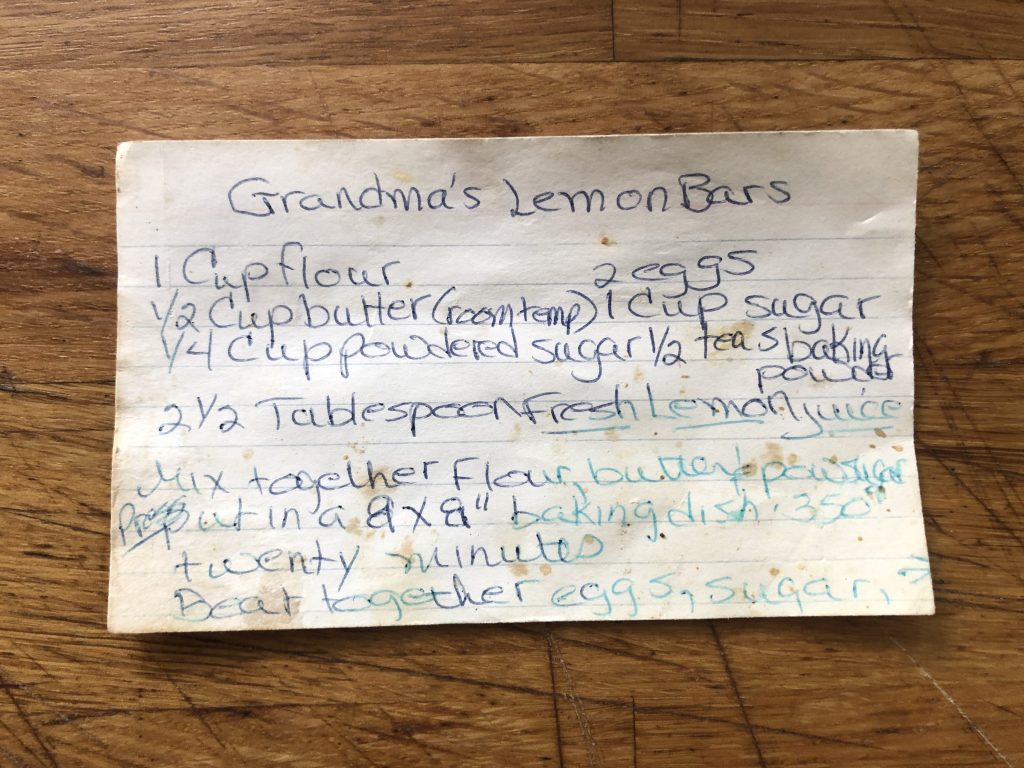 Grandma's Lemon Bars
1 Cup flour 2 eggs
1/2 Cup butter (room temp) 1 Cup sugar
1/4 Cup powdered sugar 1/2 teas baking
powder
2 1/2 Tablespoon Fresh Lemon juice
Mix together Flour, butter & pow sugar
Press Put in a 8 x 8" baking dish. 350°
twenty minutes
Beat together eggs, sugar, →